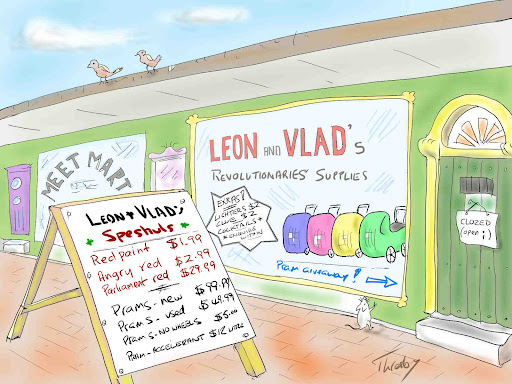 MEET MART
LEON AND VLAD's
REVOLUTIONARIES' SUPPLIES
EXRAS?
LIGHTERS $2
GLUE $2
COCKTAILS +
WITHIN
PRAM GIVEAWAY!
CLOZED
(open ;)
LEON + VLAD's
Speshuls
Red paint $1.99
Angry red $2.99
Parliament red $29.99
Prams - new $99.99
Prams - used $49.99
Prams - NO WHEELS $5.00
PRAM - ACCELERANT $12 LITRE
Thraby